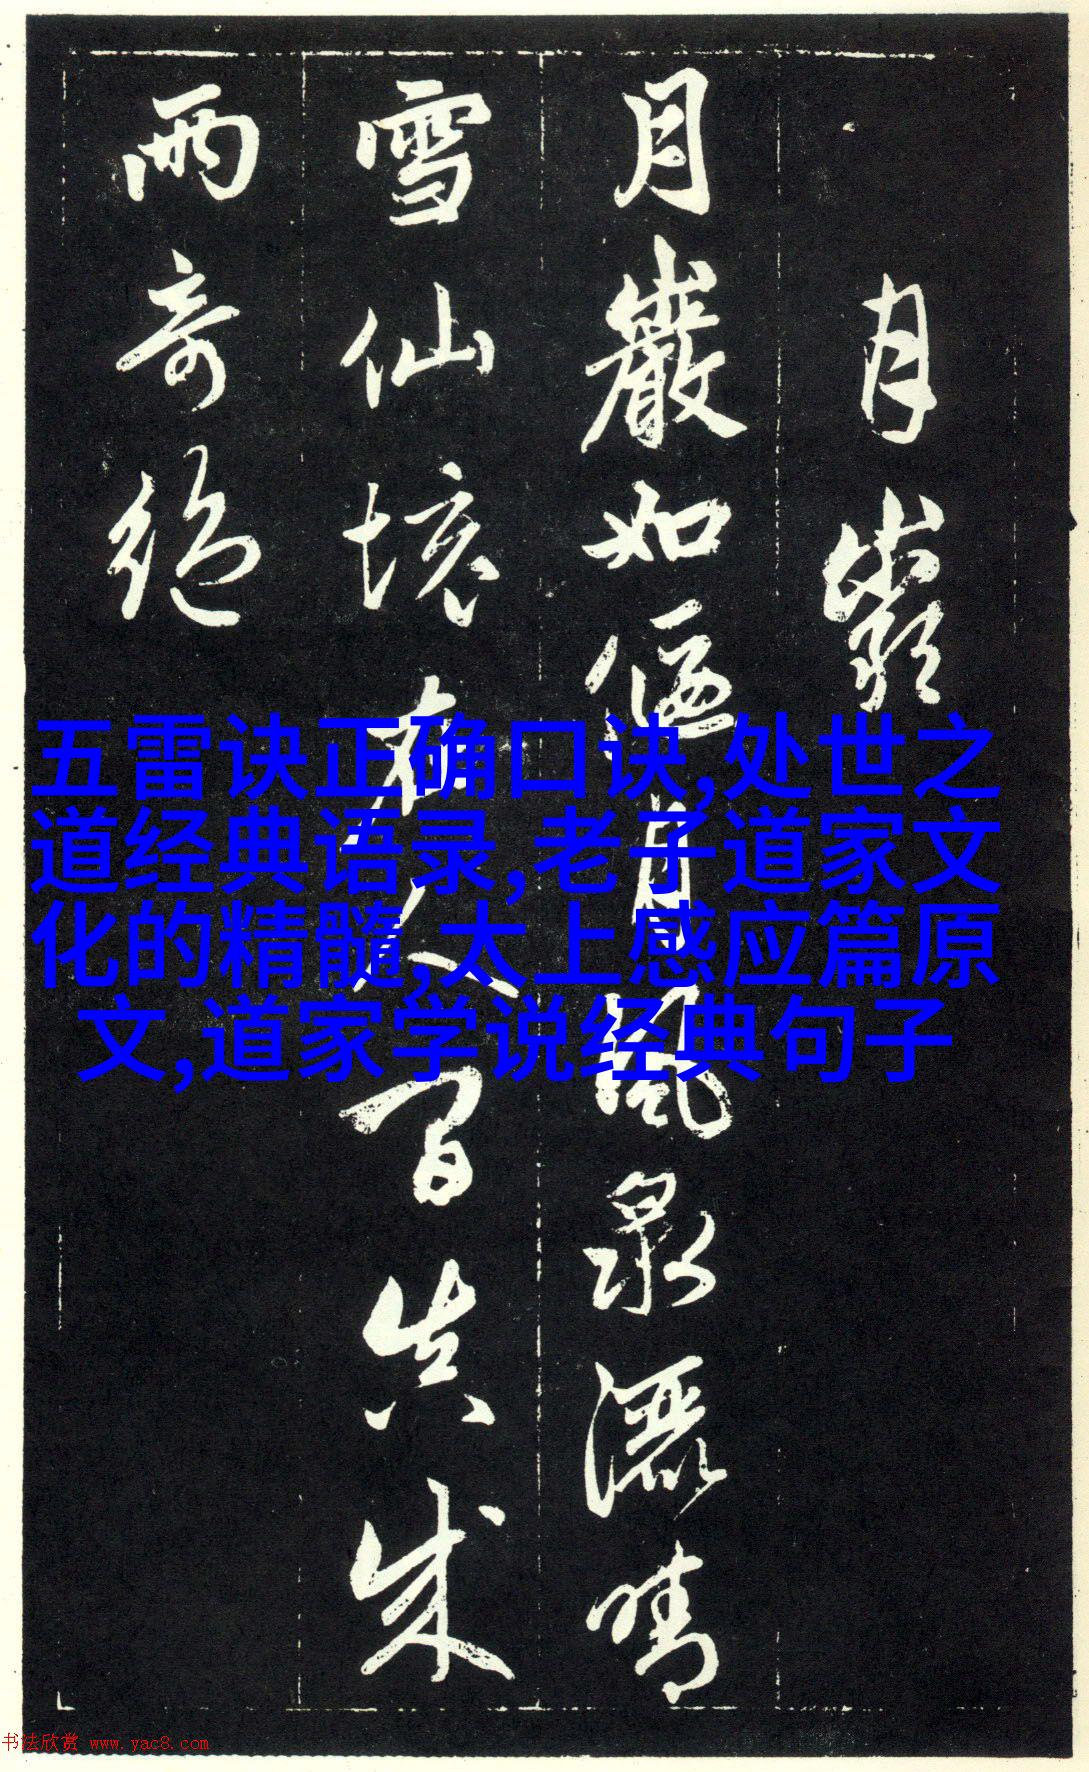 月巖
月巖如偃月風泉灑晴
雪仙境在人间真成
兩奇絕
五雷诀正确口诀,处世之
道经典语录,老子道家文
化的精髓,太上感应篇原
文,道家学说经典句子
书法欣赏 www.yac8.com